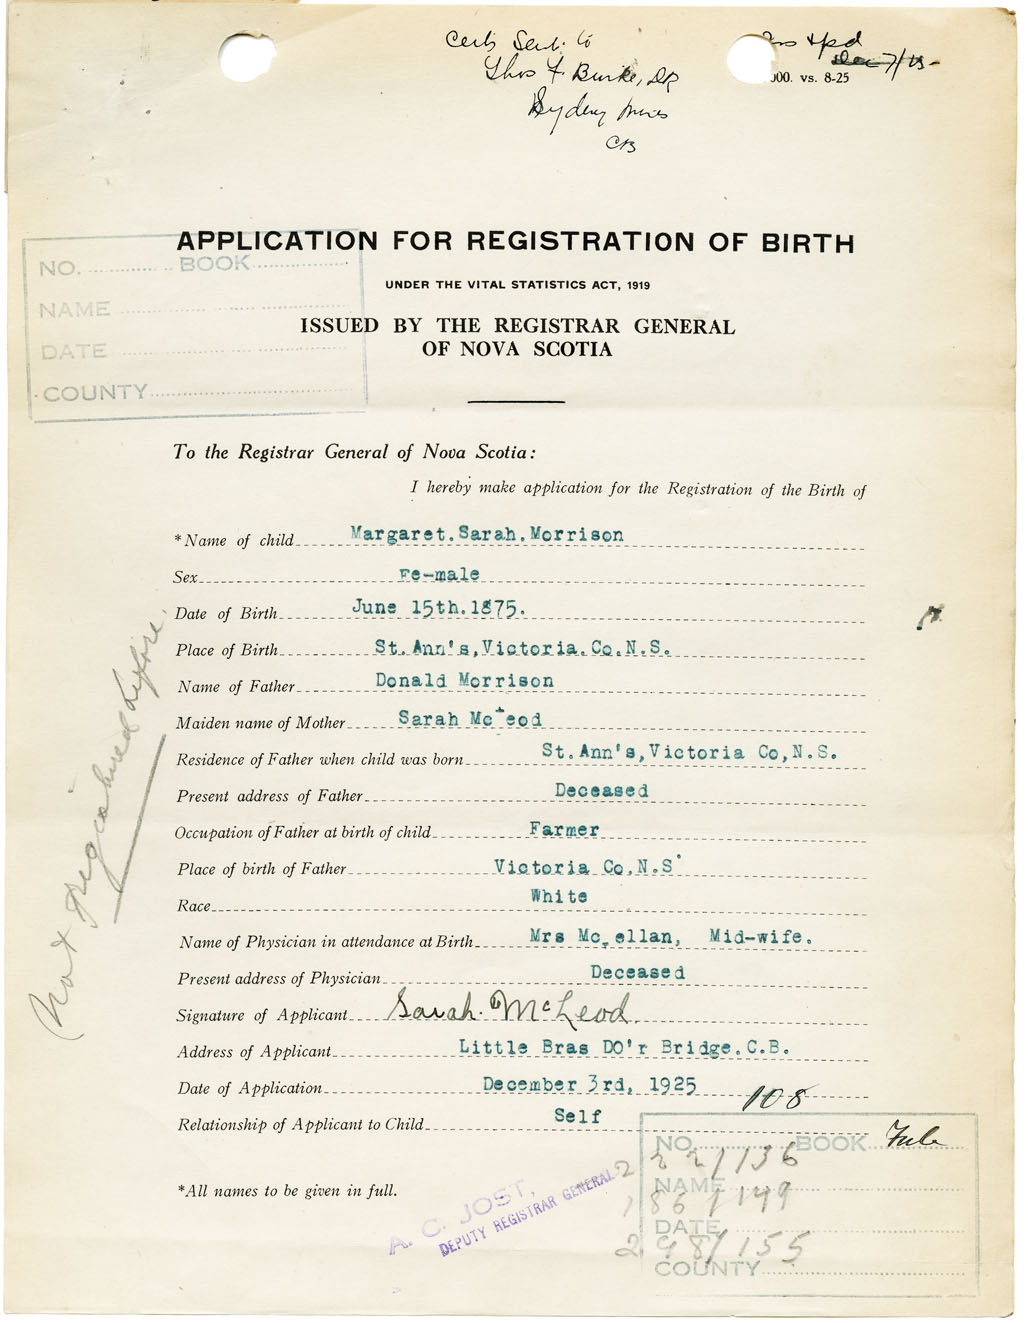 Certs Sent to
Thos F. Burke, DR
Sydney Mines
CB
000. vs. 8-25
APPLICATION FOR REGISTRATION OF BIRTH
UNDER THE VITAL STATISTICS ACT, 1919
ISSUED BY THE REGISTRAR GENERAL
OF NOVA SCOTIA
NO. BOOK
NAME
DATE
COUNTY
To the Registrar General of Nova Scotia:
I hereby make application for the Registration of the Birth of
*Name of child Margaret.Sarah.Morrison
Sex Fe-male
Date of Birth June 15th.1875.
Place of Birth St.Ann's,Victoria.Co.N.S.
Name of Father Donald Morrison
Maiden name of Mother Sarah McLeod
Residence of Father when child was born St.Ann's,Victoria Co,N.S.
Present address of Father Deceased
Occupation of Father at birth of child Farmer
Place of birth of Father Victoria Co,N.S.
Race White
Name of Physician in attendance at Birth Mrs McLellan, Mid-wife.
Present address of Physician Deceased
Signature of Applicant Sarah. McLeod.
Address of Applicant Little Bras DO'r Bridge.C.B.
Date of Application December 3rd, 1925
Relationship of Applicant to Child Self
Not Registered before.
108
NO. BOOK
2 22/136
NAME
186/149
DATE
298/155
COUNTY
*All names to be given in full.
A. C. JOST,
DEPUTY REGISTRAR GENERAL